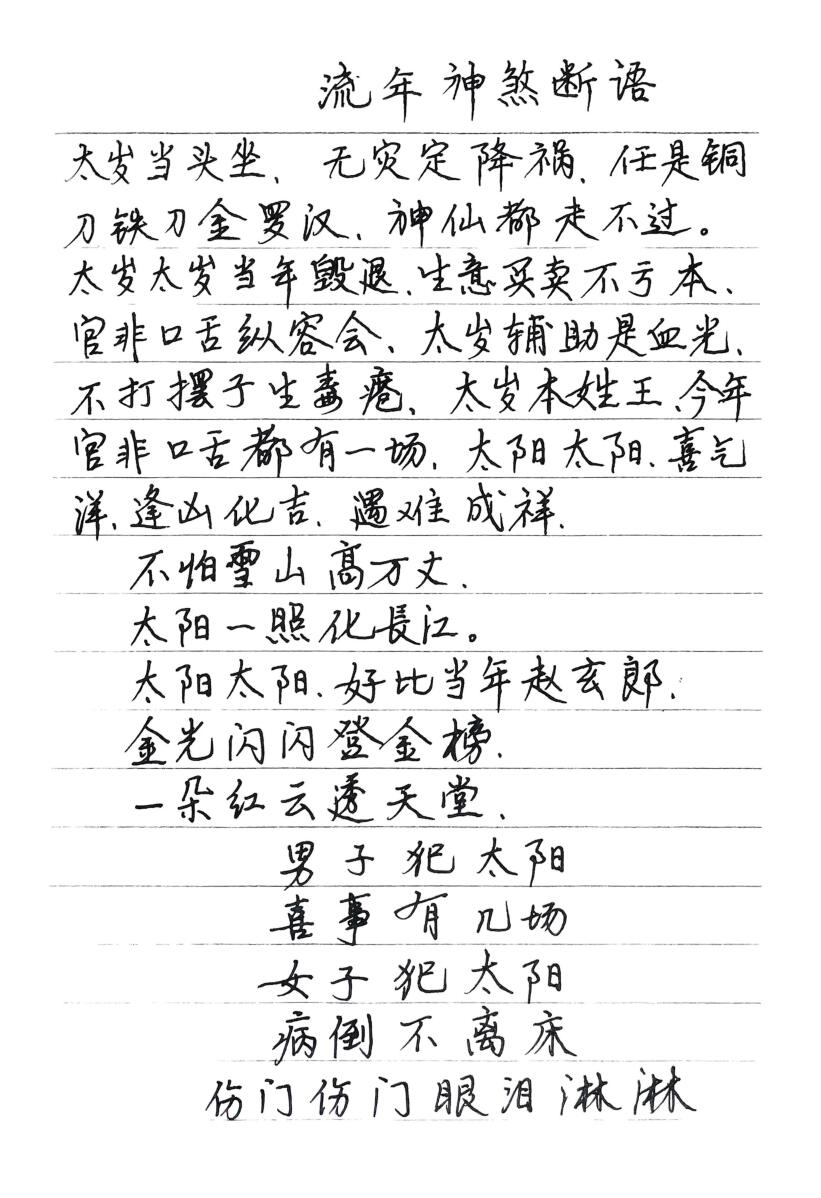 流年神煞断语
太岁当头坐、无灾定降祸、任是铜
刀铁刀金罗汉、神仙都走不过。
太岁太岁当年毁退、生意买卖不亏本、
官非口舌纵容会、太岁辅助是血光、
不打摆子生毒疮、太岁本姓王、今年
官非口舌都有一场、太阳太阳、喜气
洋、逢凶化吉、遇难成祥、
不怕雪山高万丈、
太阳一照化長江。
太阳太阳、好比当年赵玄郎、
金光闪闪登金榜、
一朵红云透天堂、
男子犯太阳
喜事有几场
女子犯太阳
病倒不离床
伤门伤门眼泪淋淋